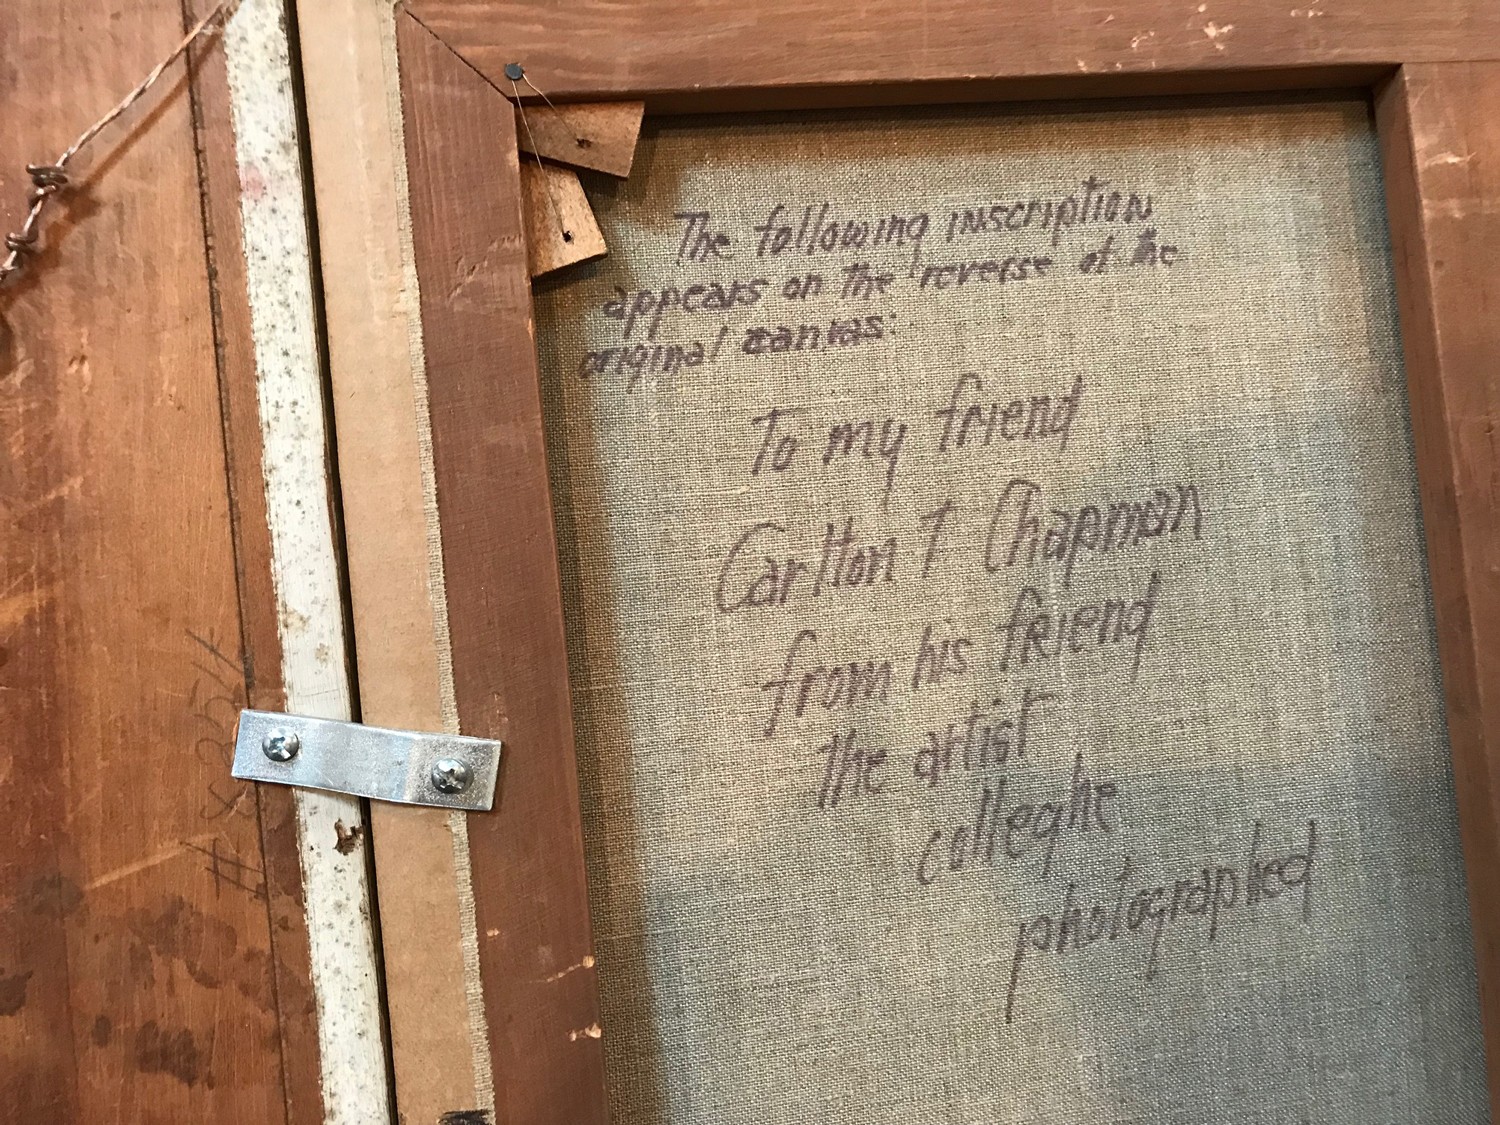 The following inscription
appears on the reverse of the
original canvas:
To my friend
Carlton T Chapman
from his friend
the artist
colleghe
photographed